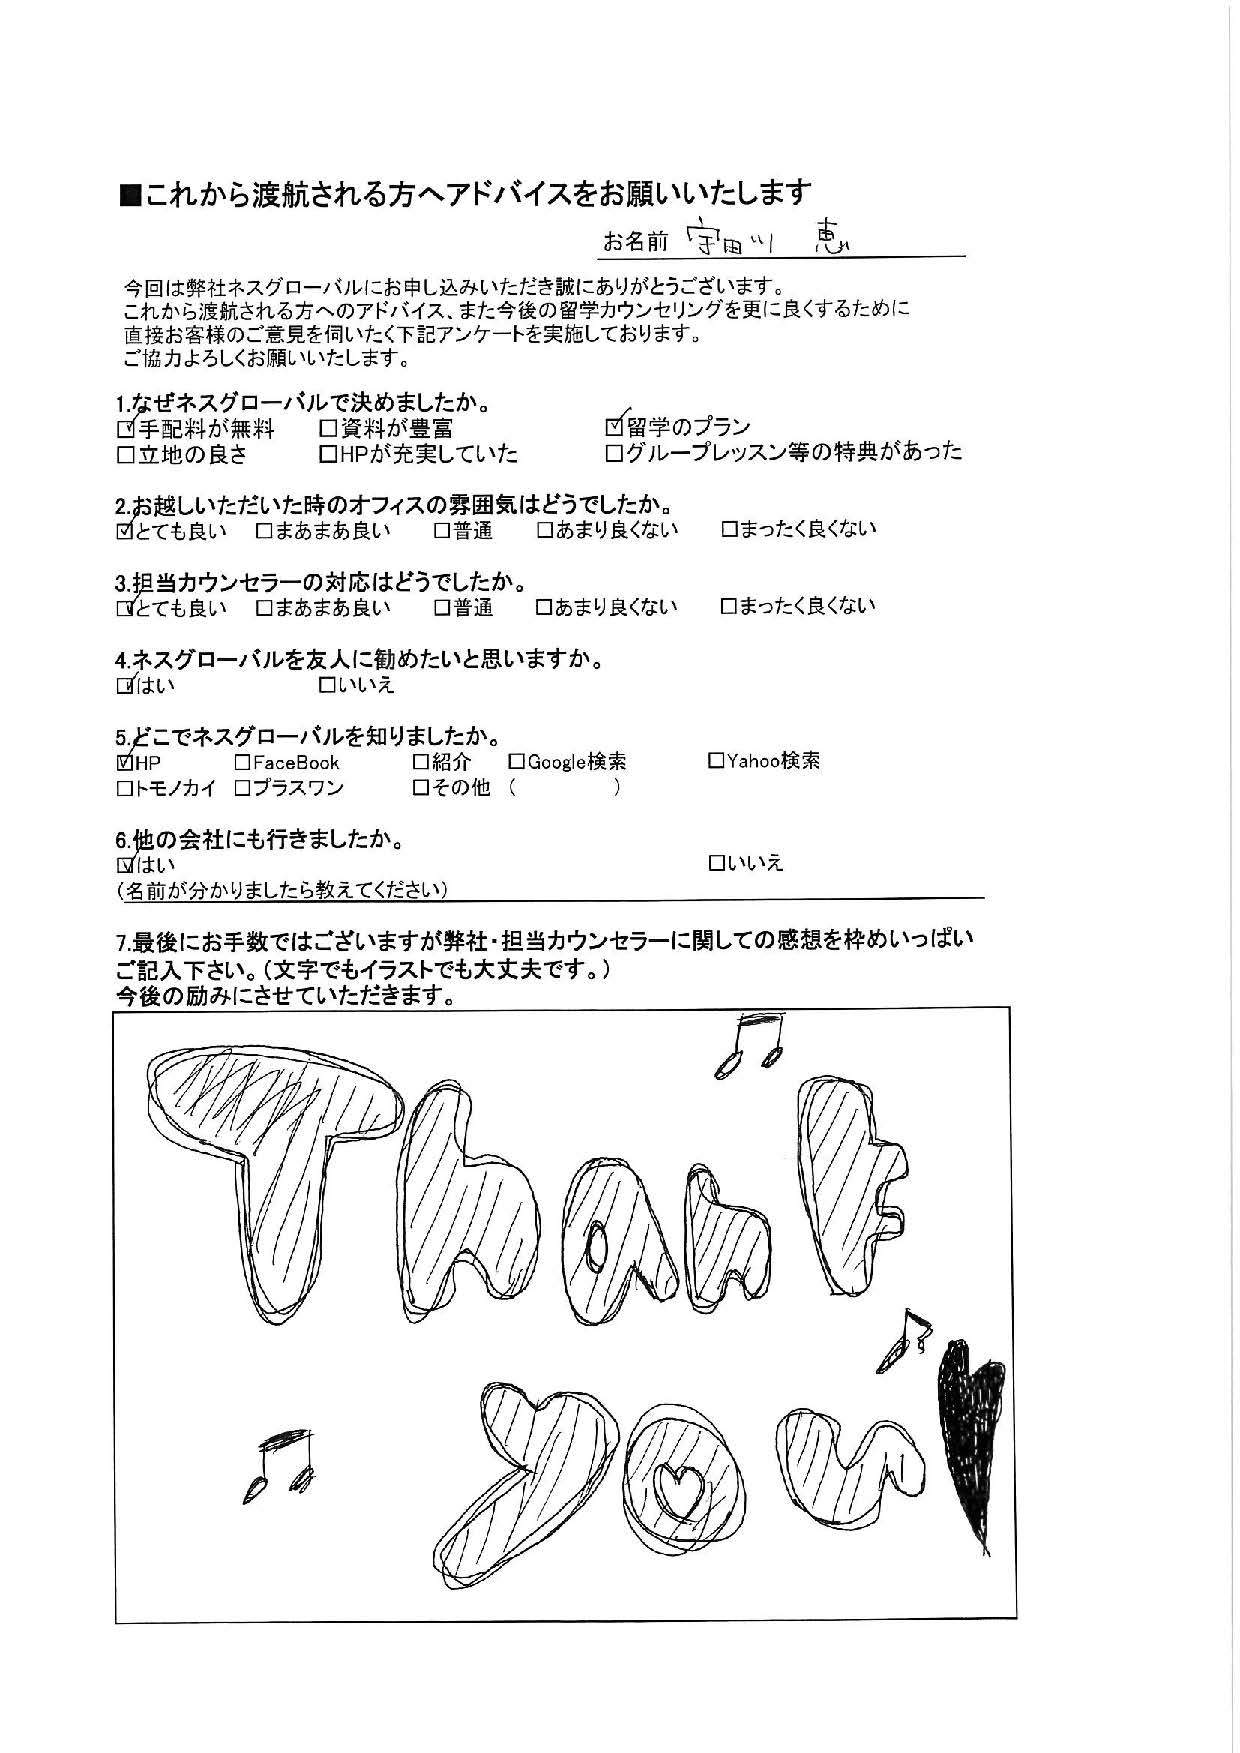 ■これから渡航される方へアドバイスをお願いいたします
お名前 宇田川 恵
今回は弊社ネスグローバルにお申し込みいただき誠にありがとうございます。
これから渡航される方へのアドバイス、また今後の留学カウンセリングを更に良くするために
直接お客様のご意見を伺いたく下記アンケートを実施しております。
ご協力よろしくお願いいたします。
1.なぜネスグローバルで決めましたか。
☑手配料が無料 □資料が豊富 ☑留学のプラン
□立地の良さ □HPが充実していた □グループレッスン等の特典があった
2.お越しいただいた時のオフィスの雰囲気はどうでしたか。
☑とても良い □まあまあ良い □普通 □あまり良くない □まったく良くない
3.担当カウンセラーの対応はどうでしたか。
☑とても良い □まあまあ良い □普通 □あまり良くない □まったく良くない
4.ネスグローバルを友人に勧めたいと思いますか。
☑はい □いいえ
5.どこでネスグローバルを知りましたか。
☑HP □FaceBook □紹介 □Google検索 □Yahoo検索
□トモノカイ □プラスワン □その他 ( )
6.他の会社にも行きましたか。
☑はい □いいえ
(名前が分かりましたら教えてください)
7.最後にお手数ではございますが弊社・担当カウンセラーに関しての感想を枠めいっぱい
ご記入下さい。(文字でもイラストでも大丈夫です。)
今後の励みにさせていただきます。
Thank
you